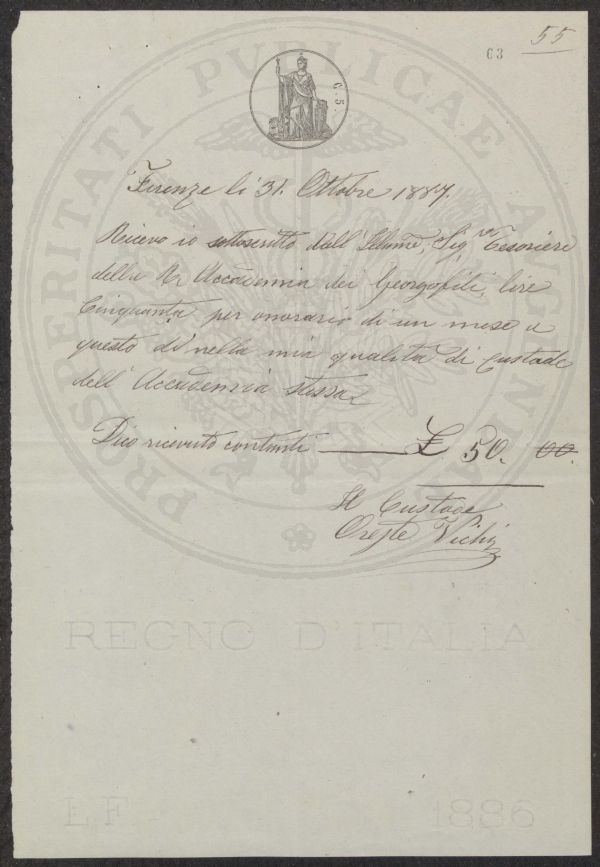 55
63
C. 5.
PROSPERITATI PUBLICAE AUGENDAE
Firenze li 31. Ottobre 1887.
Ricevo io sottoscritto dall' Illumo, Sigre Tesoriere
della R. Accademia dei Georgofili, lire
Cinquanta per onorario di un mese a
questo dì nella mia qualità di Custode
dell' Accademia stessa
Dico ricevuto contanti £ 50. 00.
Il Custode
Oreste Vichi
REGNO D'ITALIA
LF 1886